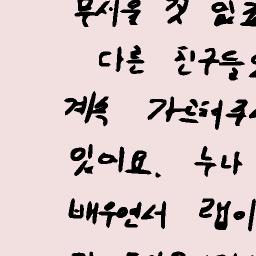 무서울 것 있고
다른 친구들
계속 가르쳐주
있어요. 누나
배우면서 랩이